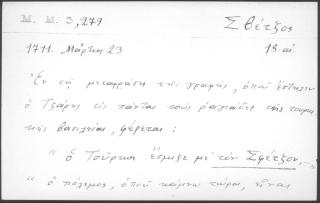 Μ. Μ. 3,279 Σβέτζος
1711. Μάρτιου 23 18. αἰ.
Ἐν τῇ μεταφράσει τῆς γραφῆς, ὁποῦ ἔστειλεν
ὁ Τζάρης εἰς πάντας τοὺς ῥαγιάδες τῆς τουρκι
κῆς βασιλείας, φέρεται:
" ὁ Τοῦρκος ἔσμιξε μὲ τὸν Σφέτζον...
" ὁ πόλεμος, ὁποῦ κάμνω τώρα, εἶναι